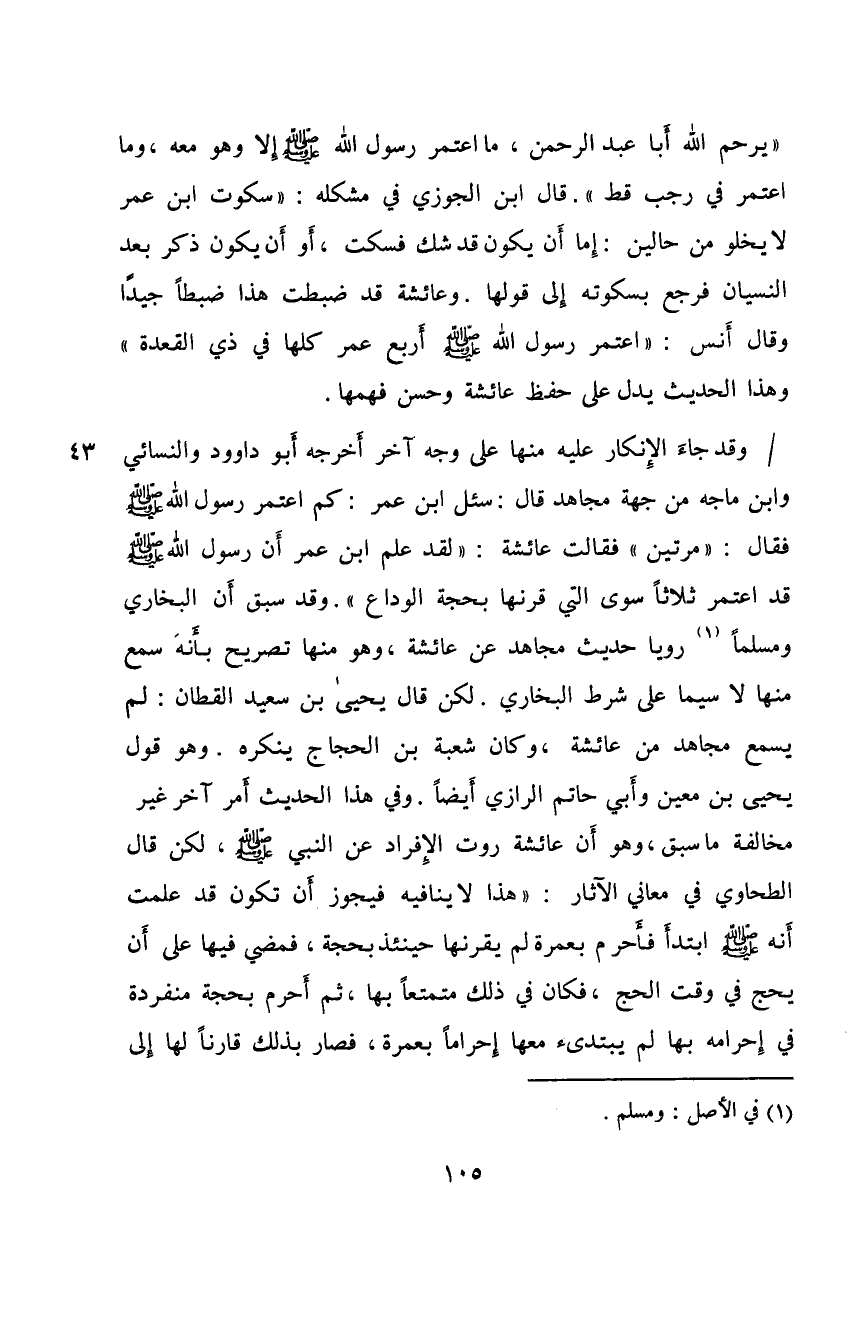 «يرحم الله أَبا عبد الرحمن ، ما اعتمر رسول الله ﷺ إلا وهو معه ،وما
اعتمر في رجب قط ». قال ابن الجوزي في مشكله : «سكوت ابن عمر
لا يخلو من حالين : إما أن يكون قد شك فسكت ، أو أن يكون ذكر بعد
النسيان فرجع بسكوته إلى قولها . وعائشة قد ضبطت هذا ضبطاً جيدًا
وقال أَنس : «اعتمر رسول الله ﷺ أربع عمر كلها في ذي القعدة »
وهذا الحديث يدل على حفظ عائشة وحسن فهمها .
/ وقد جاءَ الإِنكار عليه منها على وجه آخر أَخرجه أَبو داوود والنسائي ٤٣
وابن ماجه من جهة مجاهد قال : سئل ابن عمر : كم اعتمر رسول الله ﷺ
فقال : «مرتين » فقالت عائشة : «لقد علم ابن عمر أَن رسول الله ﷺ
قد اعتمر ثلاثاً سوى التي قرنها بحجة الوداع ». وقد سبق أَن البخاري
ومسلماً (١) رويا حديث مجاهد عن عائشة ، وهو منها تصريح بأَنهَ سمع
منها لا سيما على شرط البخاري . لكن قال يحيىٰ بن سعيد القطان : لم
يسمع مجاهد من عائشة ، وكان شعبة بن الحجاج ينكره . وهو قول
يحيى بن معين وأَبي حاتم الرازي أَيضاً . وفي هذا الحديث أَمر آخر غير
مخالفة ما سبق ، وهو أَن عائشة روت الإِفراد عن النبي ﷺ ، لكن قال
الطحاوي في معاني الآثار : «هذا لا ينافيه فيجوز أَن تكون قد علمت
أَنه ﷺ ابتدأَ فأَحرم بعمرة لم يقرنها حينئذ بحجة ، فمضي فيها على أَن
يحج في وقت الحج ، فكان في ذلك متمتعاً بها ، ثم أَحرم بحجة منفردة
في إحرامه بها لم يبتدىء معها إحراماً بعمرة ، فصار بذلك قارناً لها إلى
(١) في الأصل : ومسلم .
١٠٥